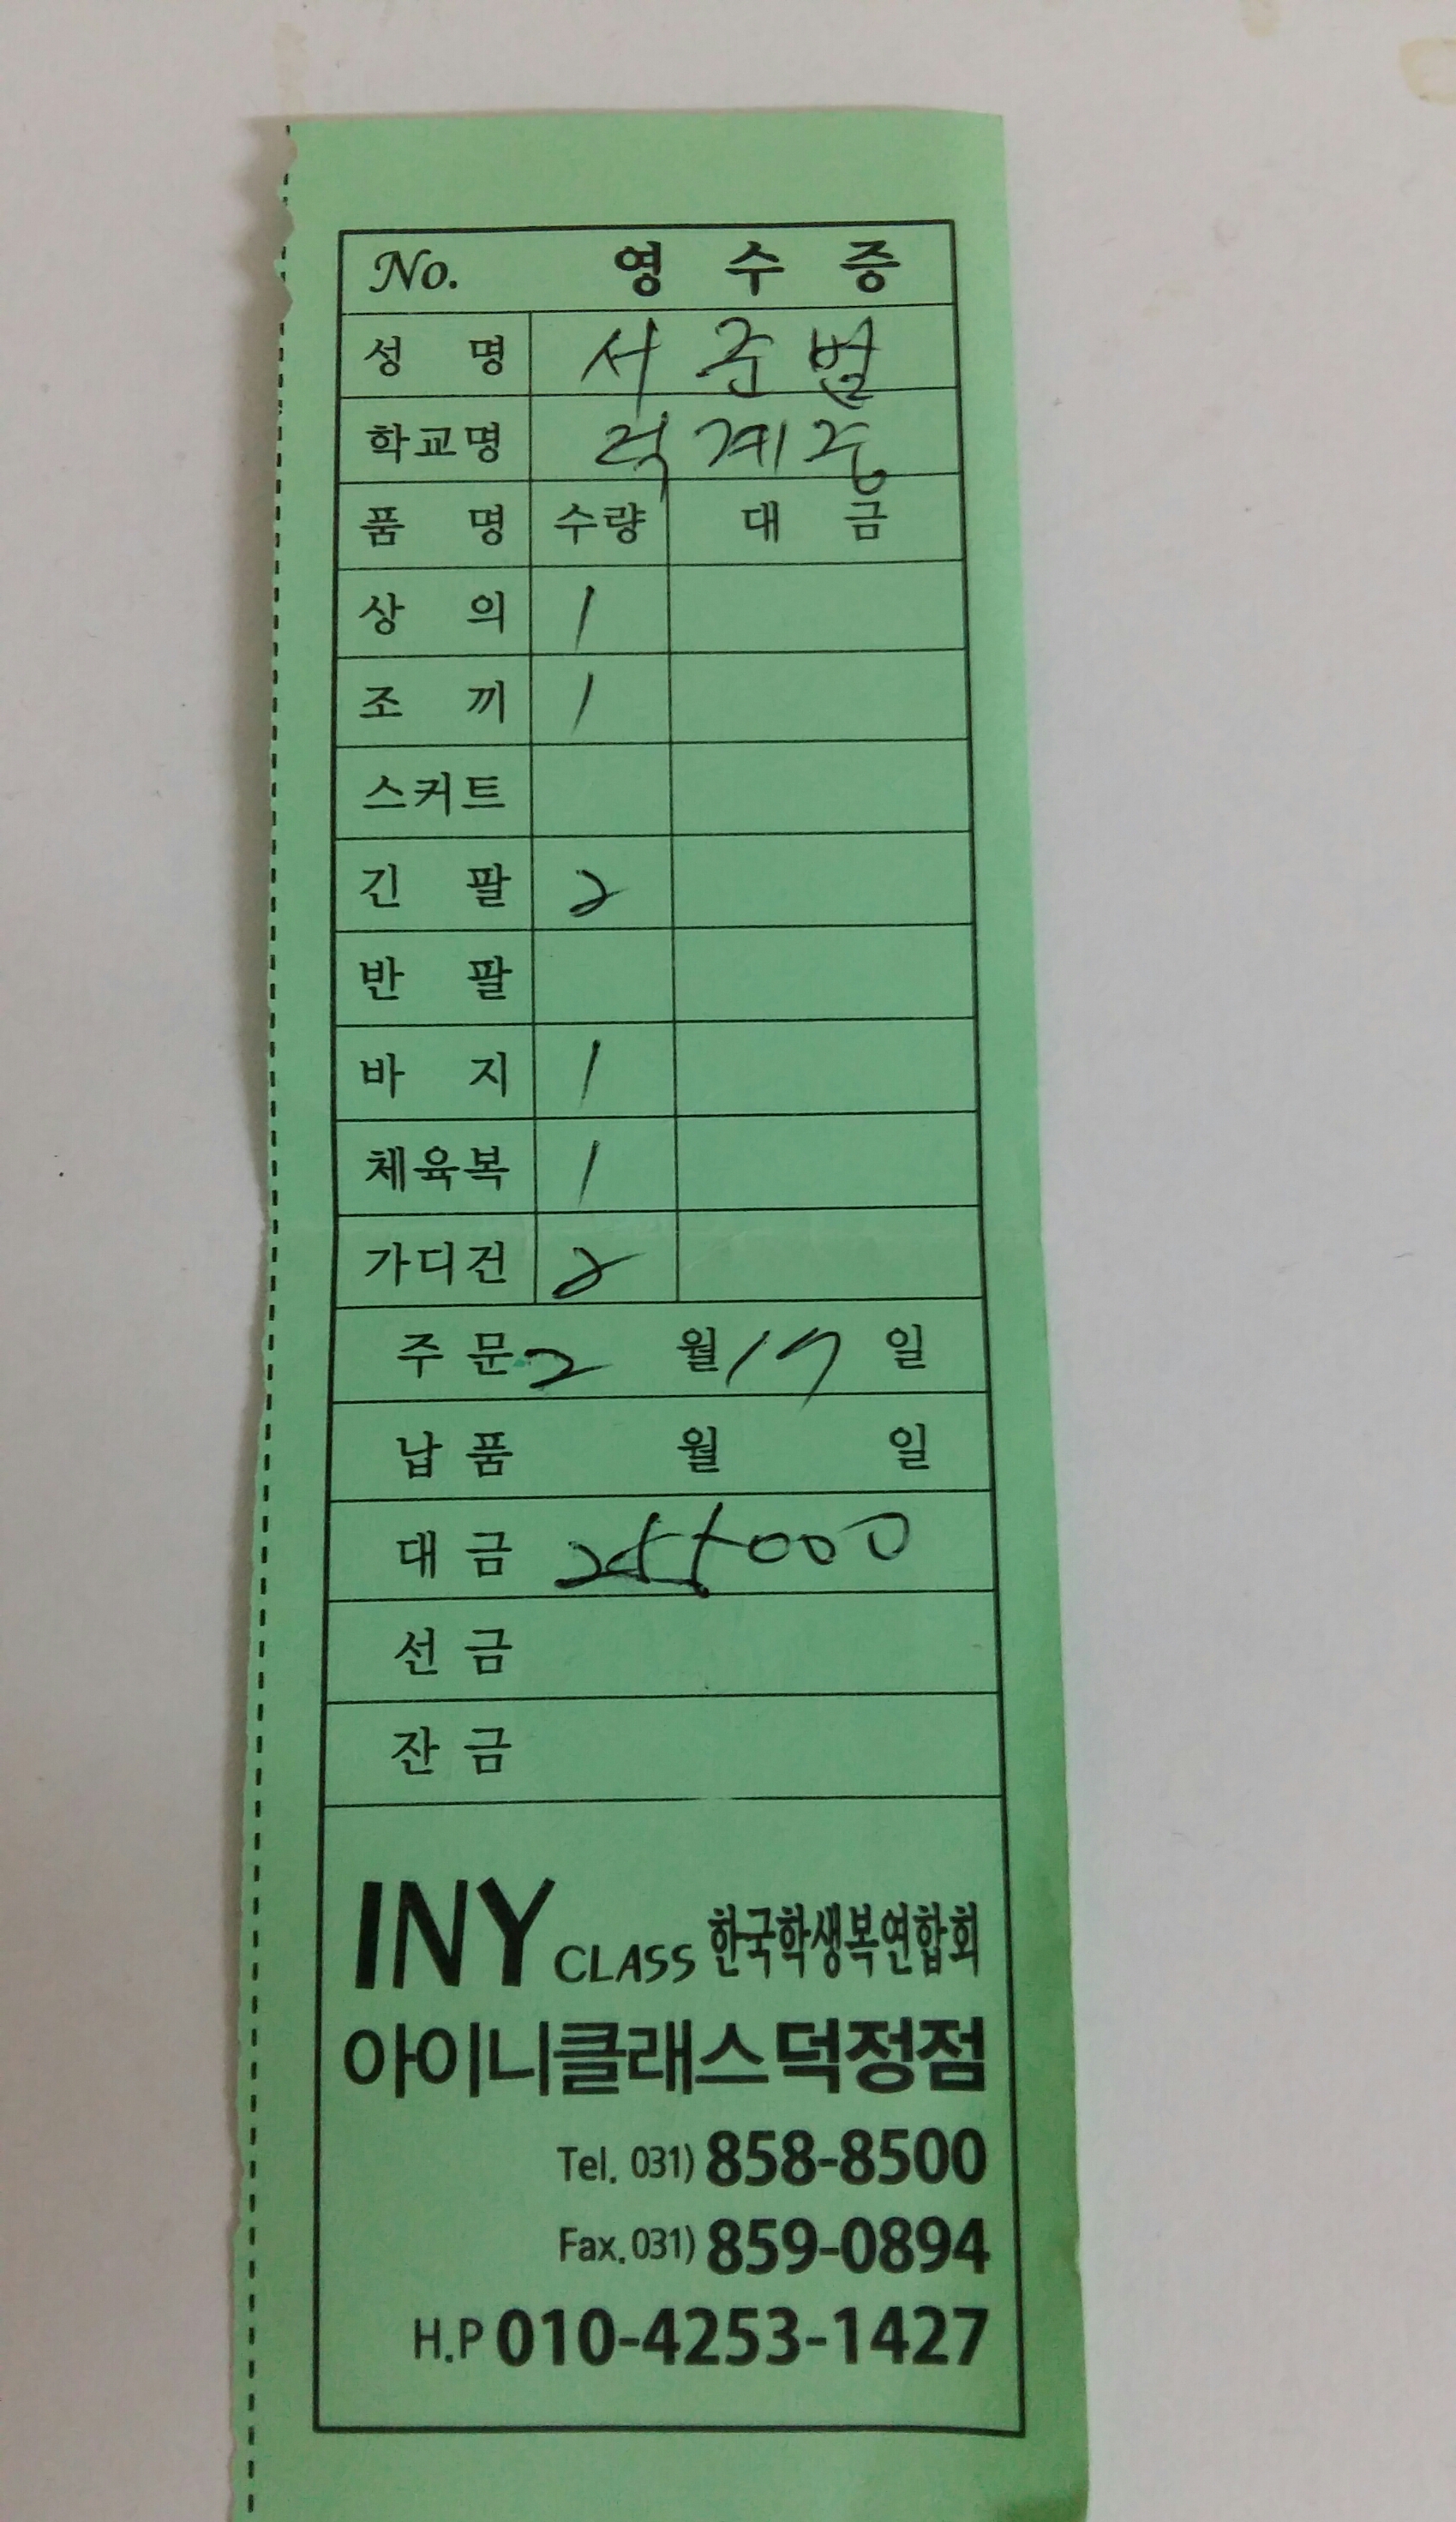 No. 영 수 증
성 명 서 준 별
학교명 덕계중
품 명 수량 대 금
상 의 1
조 끼 1
스커트
긴 팔 2
반 팔
바 지 1
체육복 1
가디건 2
주 문 2 월 17 일
납 품 월 일
대 금 255000
선 금
잔 금
INY CLASS 한국학생복연합회
아이니클래스 덕정점
Tel. 031) 858-8500
Fax. 031) 859-0894
H.P 010-4253-1427